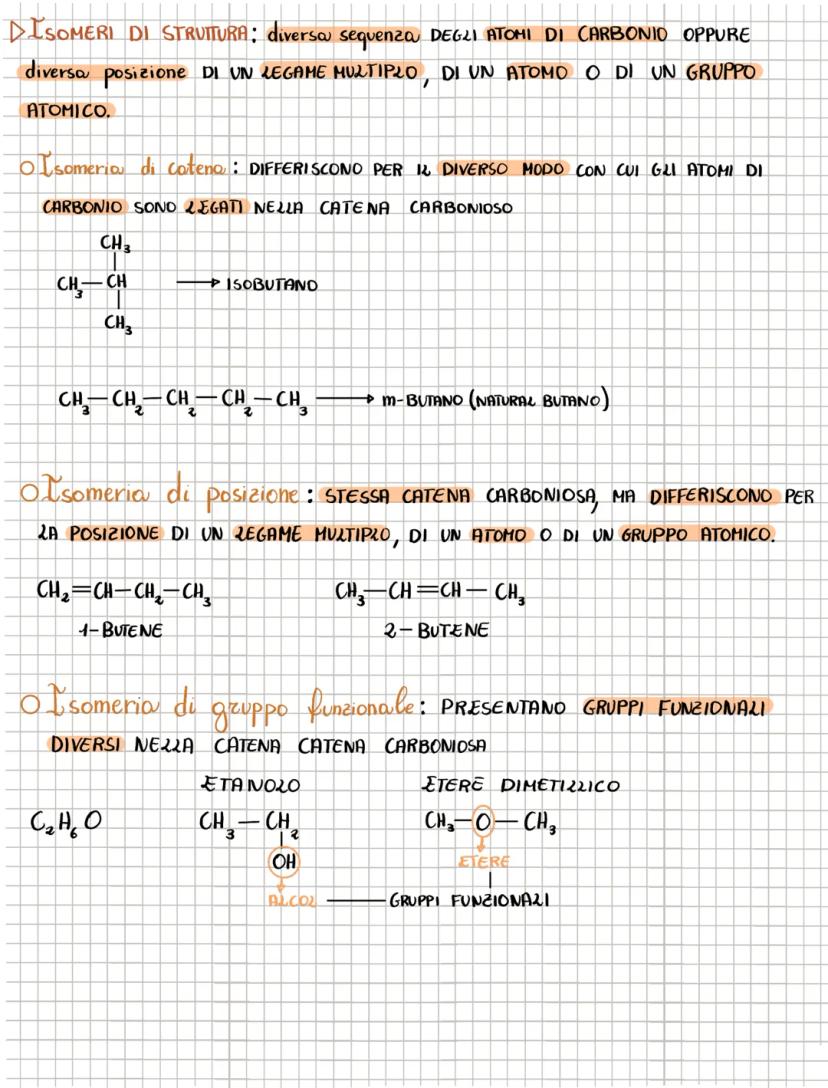 ▷ISOMERI DI STRUTTURA: diversa sequenza DEGLI ATOMI DI CARBONIO OPPURE
diversa posizione DI UN LEGAME MULTIPLO, DI UN ATOMO O DI UN GRUPPO
ATOMICO.
○Isomeria di catena: DIFFERISCONO PER IL DIVERSO MODO CON CUI GLI ATOMI DI
CARBONIO SONO LEGATI NELLA CATENA CARBONIOSO
CH₃
CH₃—CH → ISOBUTANO
CH₃
CH₃—CH₂—CH₂—CH₂—CH₃ → m-BUTANO (NATURAL BUTANO)
○Isomeria di posizione: STESSA CATENA CARBONIOSA, MA DIFFERISCONO PER
LA POSIZIONE DI UN LEGAME MULTIPLO, DI UN ATOMO O DI UN GRUPPO ATOMICO.
CH₂=CH—CH₂—CH₃ CH₃—CH=CH—CH₃
1-BUTENE 2-BUTENE
○Isomeria di gruppo funzionale: PRESENTANO GRUPPI FUNZIONALI
DIVERSI NELLA CATENA CATENA CARBONIOSA
ETANOLO ETERE DIMETILLICO
C₂H₆O CH₃—CH₂ CH₃—O—CH₃
OH ETERE
ALCOL — GRUPPI FUNZIONALI